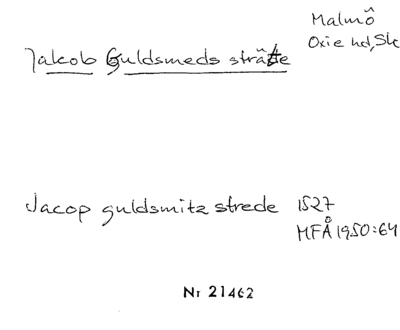 Malmö
Oxie hd, Sk
Jakob Guldsmeds sträte
Jacop guldsmitz strede 1527
MFÅ 1950:64
Nr 21462